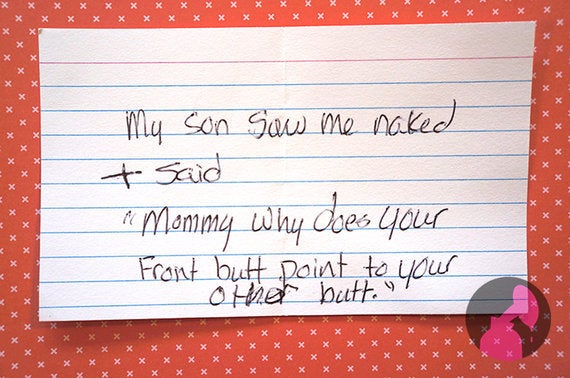 My son saw me naked
+ said
"Mommy why does your
Front butt point to your
other butt."